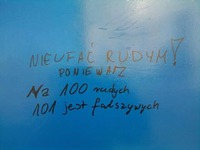 NIEUFAĆ RUDYM!
PONIEWAŻ
Na 100 rudych
101 jest fałszywych